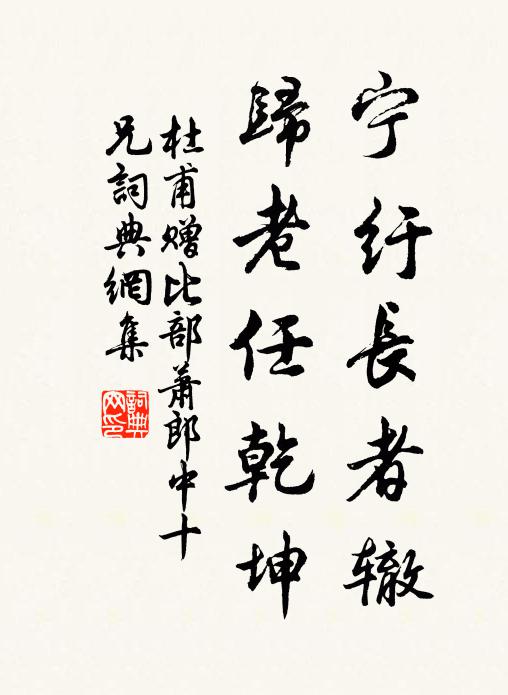 宁纡長者辙
歸老任乾坤
杜甫贈比部萧郎中十
兄詞典網集
詞典网印